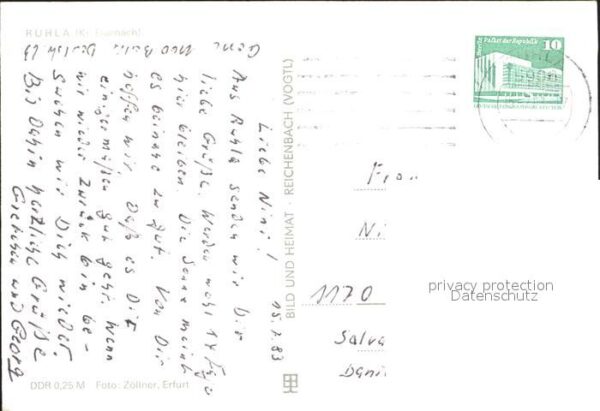 RUHLA (Kr. Eisenach)
Liebe Nini!
Aus Ruhla senden wir Dir
liebe Grüße. Werden wohl 14 Tage
hier bleiben. Die Sonne meint
es beinahe zu gut. Von Dir
hoffen wir, daß es Dir
einigermaßen gut geht. Wenn
wir wieder zurück
suchen wir Dich wieder.
Bis dahin herzliche Grüße
Gretchen und Georg
15.7.83
DDR 0,25 M Foto: Zöllner, Erfurt
BILD UND HEIMAT · REICHENBACH (VOGTL)
Palast der Republik
10
Frau
Ni
1170
Salva
Dani
privacy protection
Datenschutz